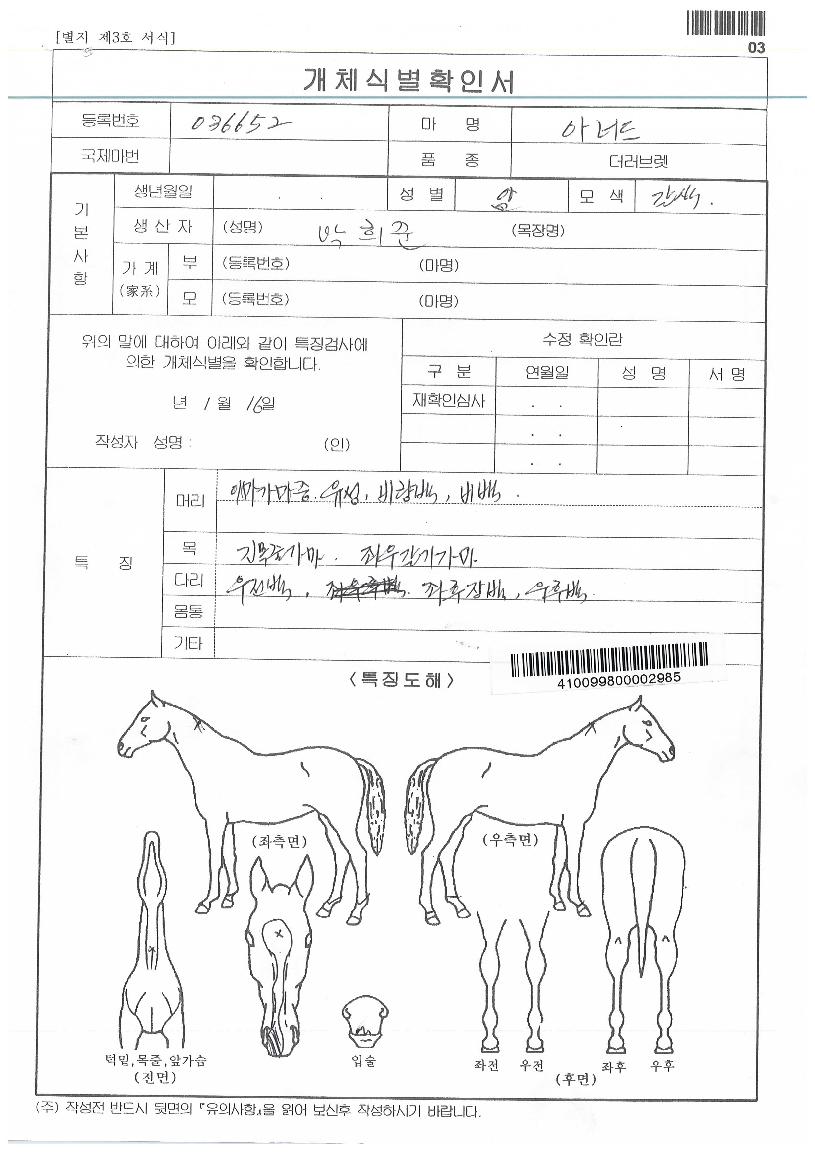 [별지 제3호 서식]
03
개체식별확인서
등록번호 036652 마 명 아너드
국제마번 품 종 더러브렛
기본사항
생년월일 . . 성 별 암 모 색 갈색.
생 산 자 (성명) 박희준 (목장명)
가 계 (家系) 부 (등록번호) (마명)
모 (등록번호) (마명)
위의 말에 대하여 아래와 같이 특징검사에
의한 개체식별을 확인합니다.
년 1월 16일
작성자 성명 : (인)
수정 확인란
구 분 연월일 성 명 서 명
재확인심사 . .
. .
. .
특 징
머리 이마가마중. 유성, 비량백, 비백.
목
다리 우전백, 좌후장백, 우후백.
몸통
기타
410099800002985
<특징도해>
(좌측면)
(우측면)
턱밑,목줄,앞가슴
(전면)
입술
좌전 우전
(후면)
좌후 우후
(주) 작성전 반드시 뒷면의 『유의사항』을 읽어 보신후 작성하시기 바랍니다.